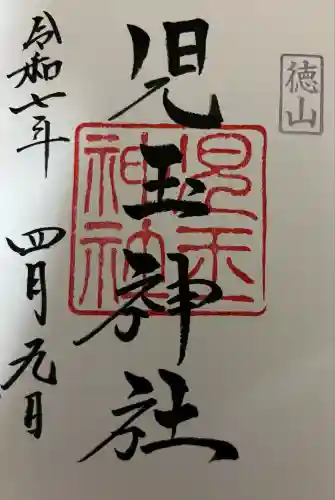 徳山
児玉神社
児玉神社
令和七年 四月元日